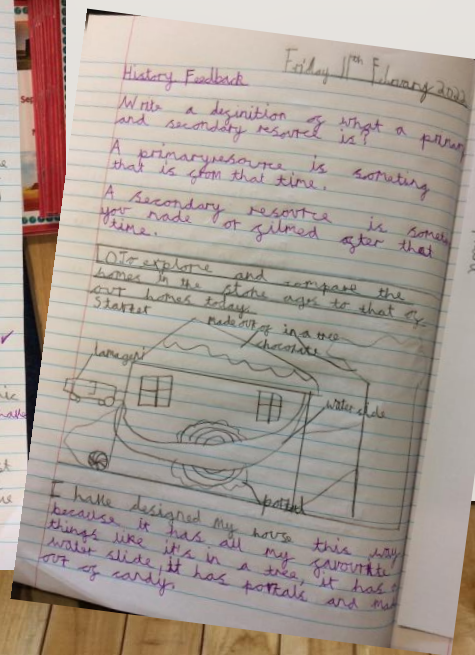 Friday 11th February 2022
History Feedback
Write a definition of what a primary
and secondary resource is!
A primary resource is someting
that is from that time.
A secondary resource is somet
you made or filmed after that
time.
LO: To explore and compare the
homes in the stone ages to that of
our homes today.
Starter
made out of in a tree
chocolate
water slide
portal
I have designed my house this way
because it has all my favourite
things like it's in a tree, it has a
water slide, it has portals and mad
out of candy.